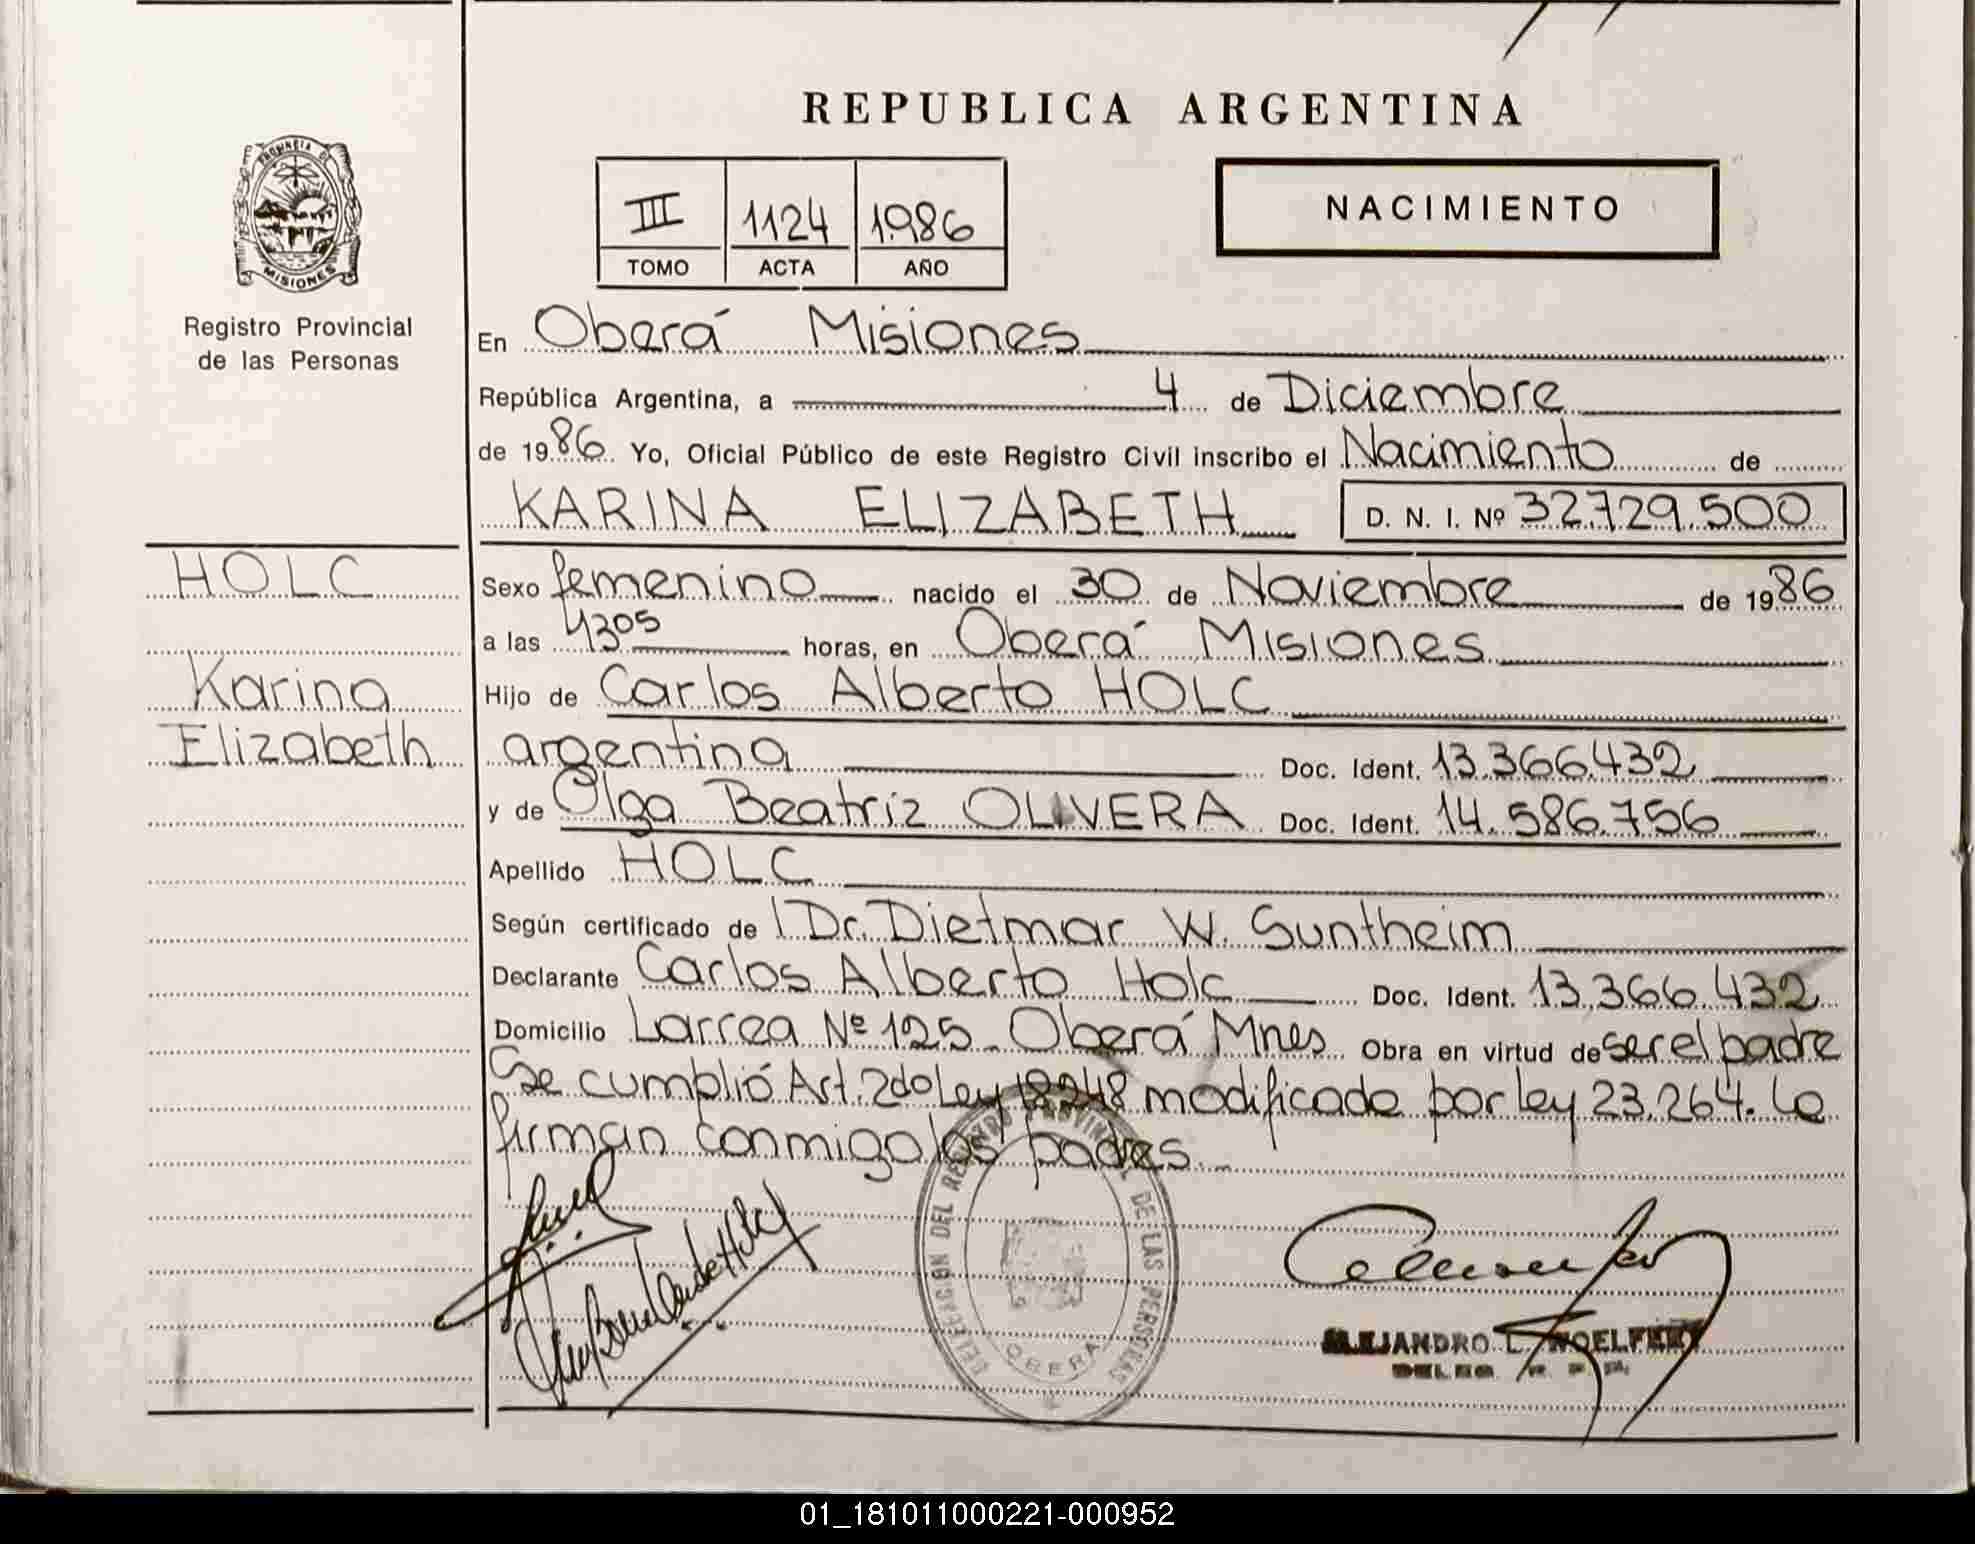 REPUBLICA ARGENTINA
PROVINCIA DE
MISIONES
Registro Provincial
de las Personas
III 1124 1986
TOMO ACTA AÑO
NACIMIENTO
En Oberá Misiones
República Argentina, a 4 de Diciembre
de 1986 Yo, Oficial Público de este Registro Civil inscribo el Nacimiento de
KARINA ELIZABETH D. N. I. Nº 32.729.500
HOLC
Karina
Elizabeth
Sexo femenino nacido el 30 de Noviembre de 1986
a las 1305 horas, en Oberá Misiones
Hijo de Carlos Alberto HOLC
argentina Doc. Ident. 13.366.432
y de Olga Beatriz OLIVERA Doc. Ident. 14.586.756
Apellido HOLC
Según certificado de Dr. Dietmar W. Suntheim
Declarante Carlos Alberto Holc Doc. Ident. 13.366.432
Domicilio Larrea Nº 125. Oberá Mnes Obra en virtud de ser el padre
Se cumplió Art. 2do Ley 18248 modificada por ley 23.264. Le
firman conmigo los padres
DELEGACION DEL REGISTRO PROVINCIAL DE LAS PERSONAS
OBERA
ALEJANDRO L.
01_181011000221-000952